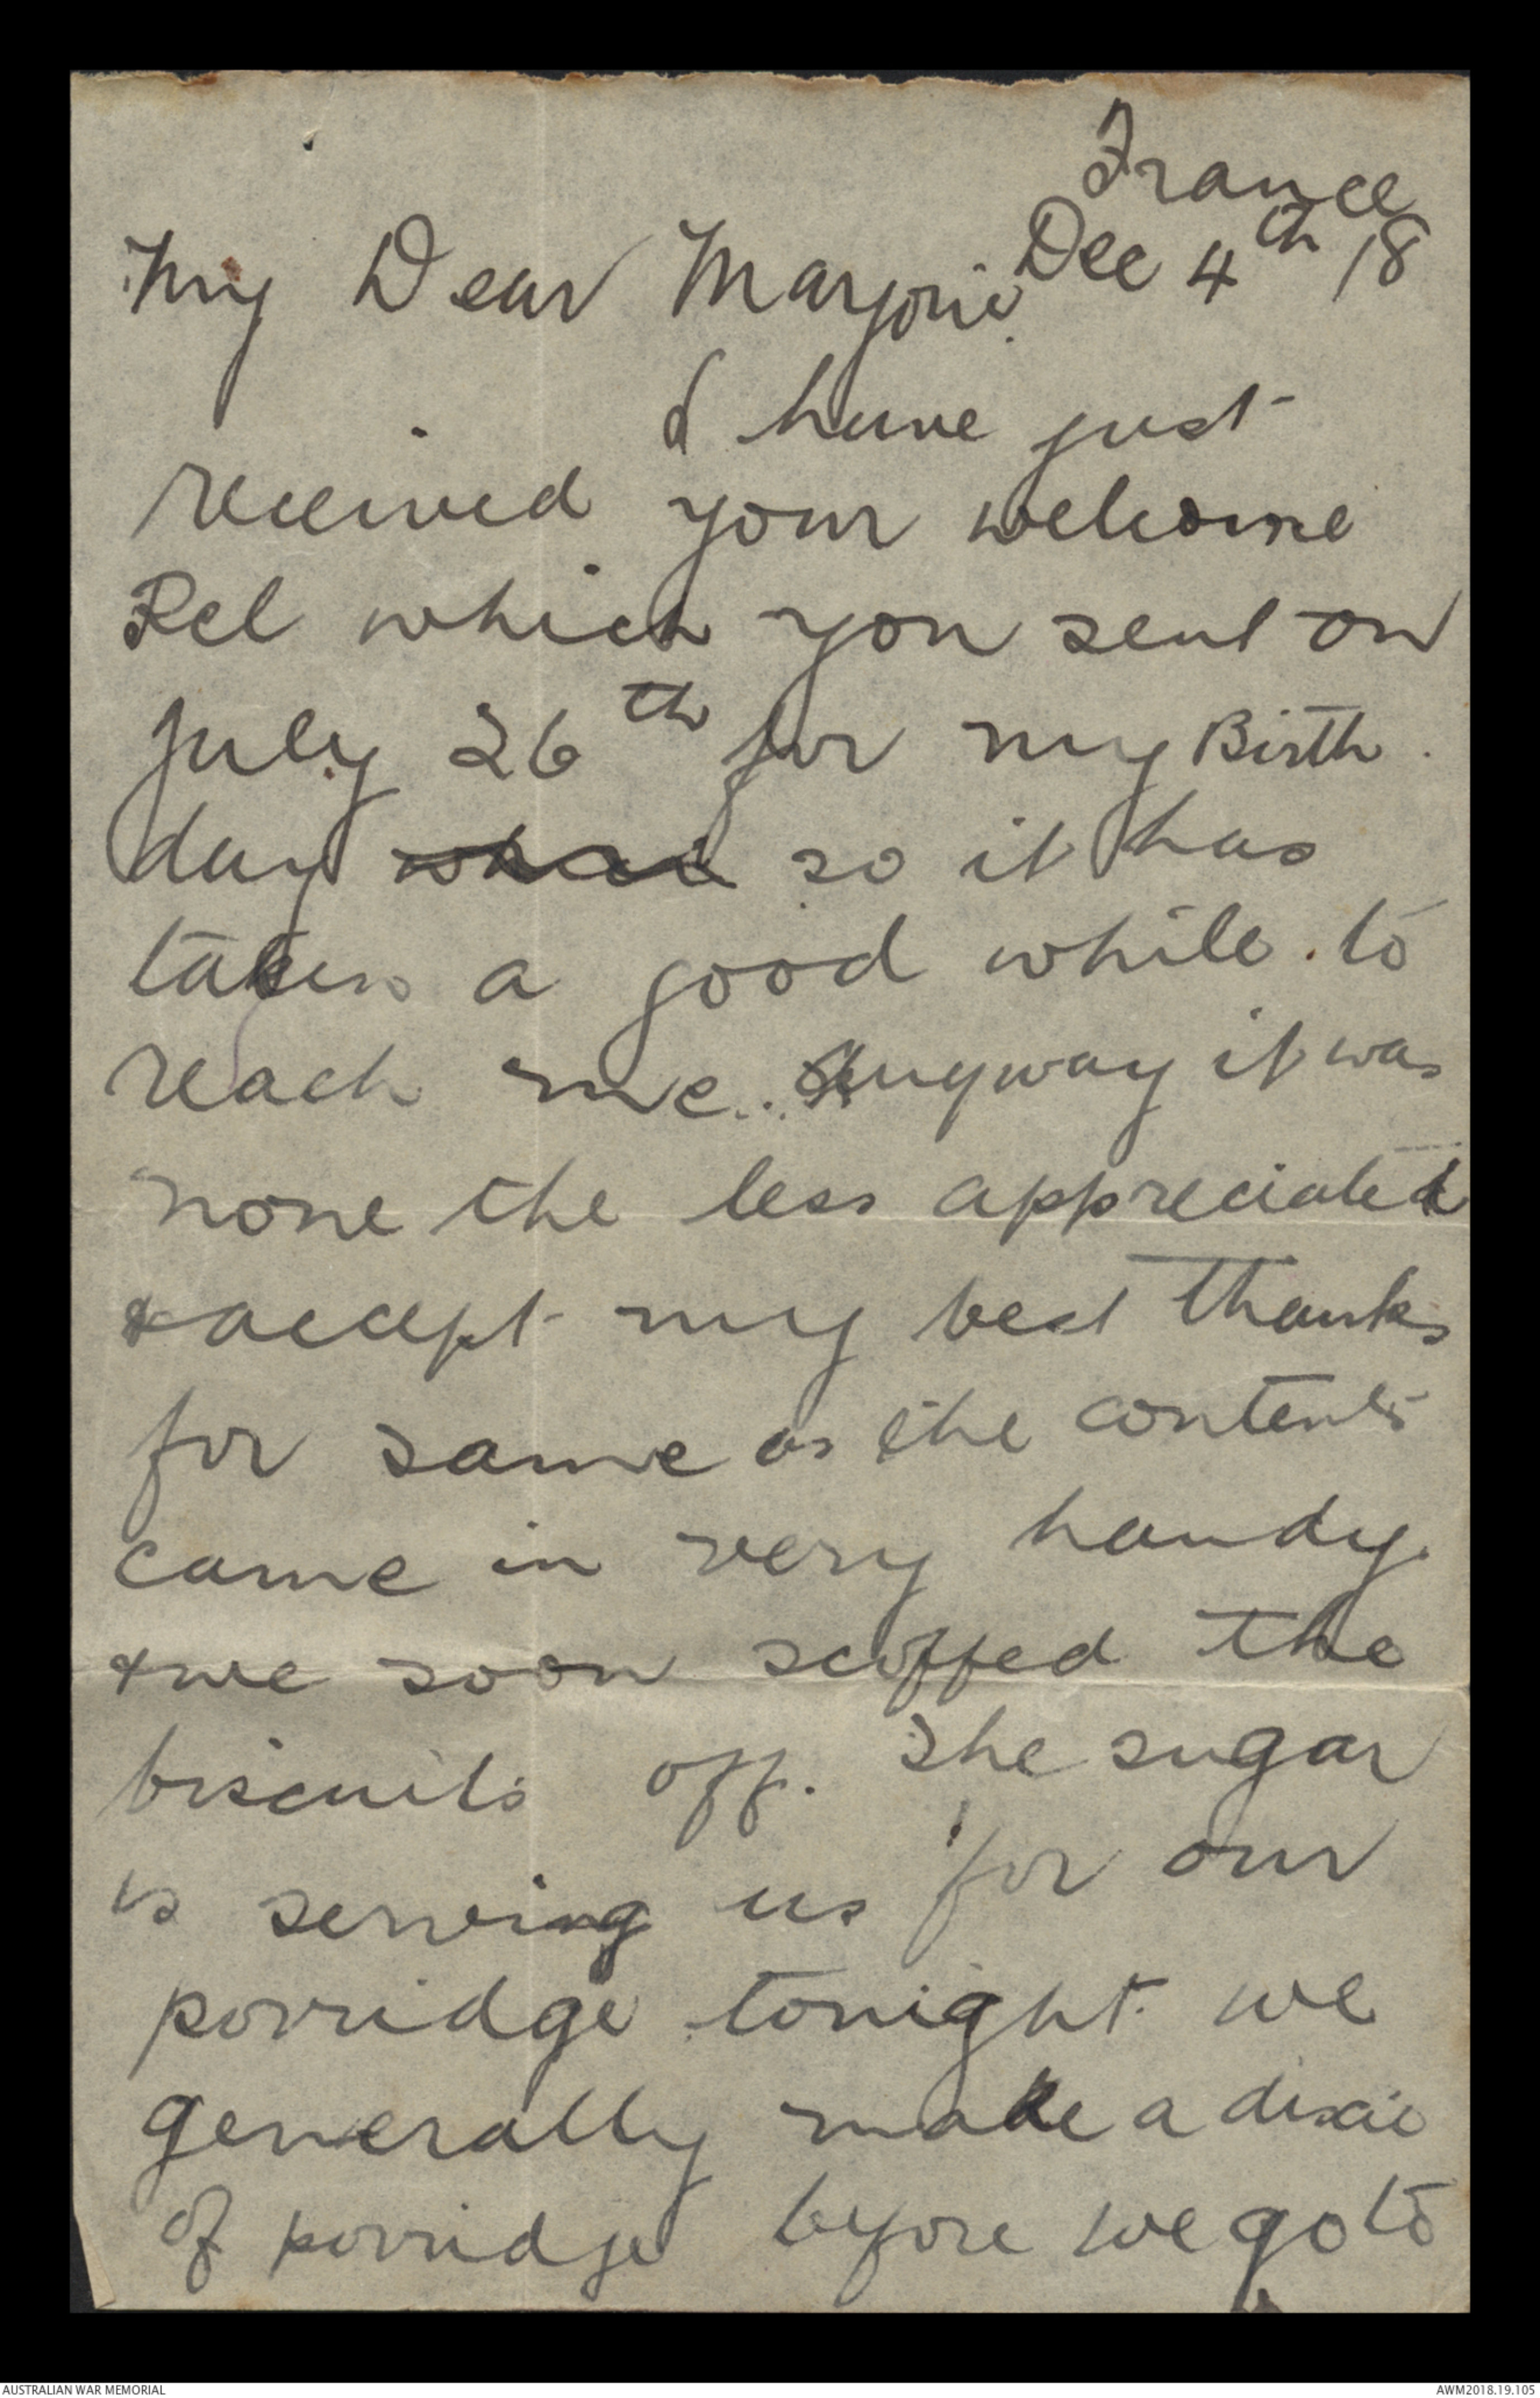 France
Dec 4th 18
My Dear Marjorie.
I have just
received your welcome
Pcl which you sent on
July 26th for my Birth
day so it has
taken a good while to
reach me. Anyway it was
none the less appreciated
& accept my best thanks
for same as the contents
came in very handy
& we soon scoffed the
biscuits off. The sugar
is serving us for our
porridge tonight we
generally make a dixie
of porridge before we go to
AUSTRALIAN WAR MEMORIAL
AWM2018.19.105